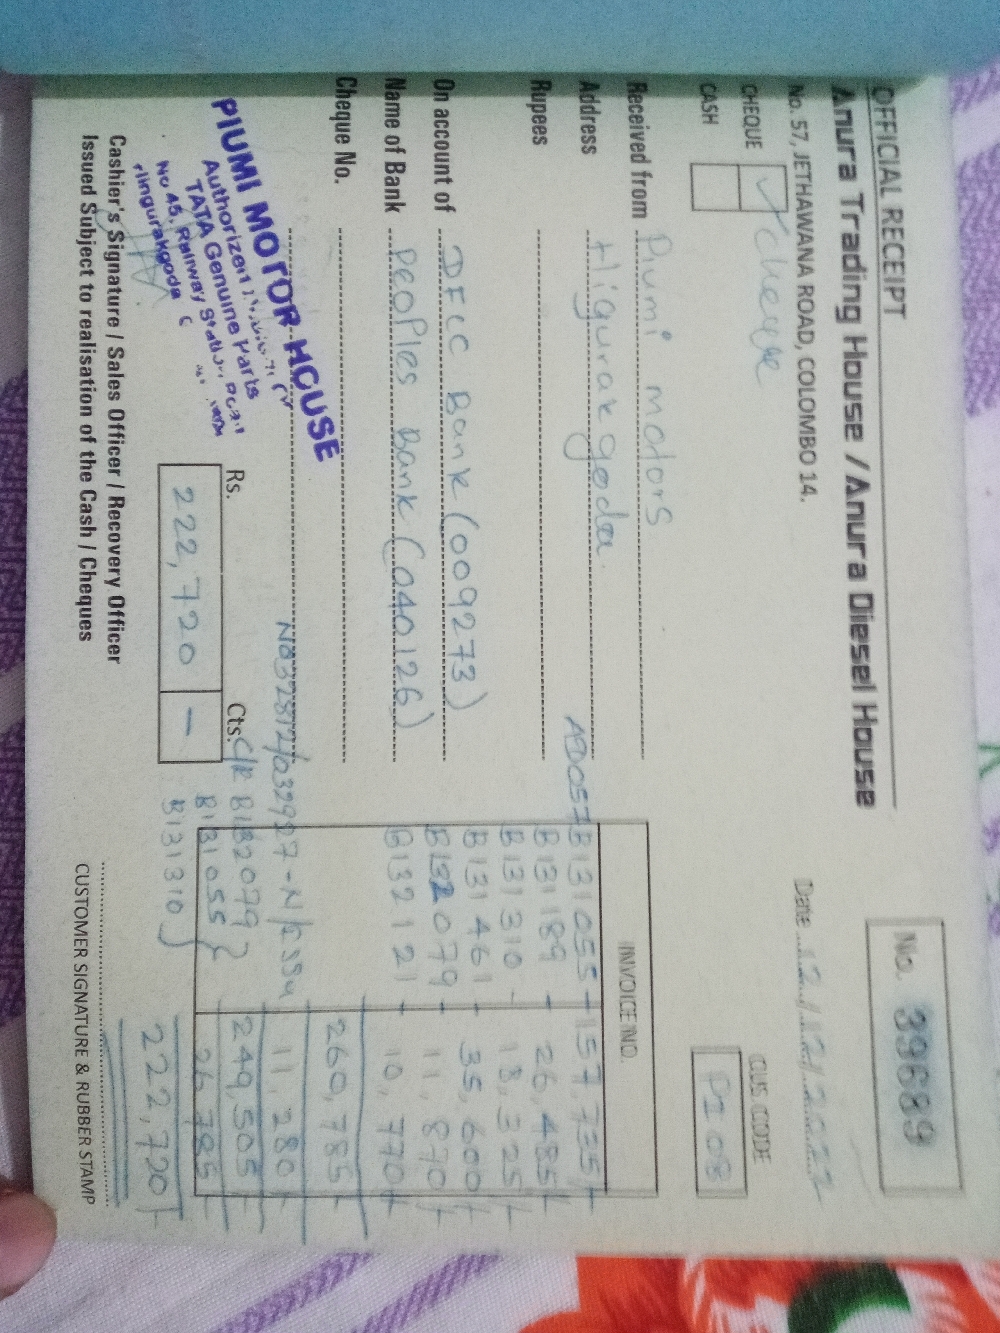 OFFICIAL RECEIPT
Anura Trading House / Anura Diesel House
No. 57, JETHAWANA ROAD, COLOMBO 14.
No. 39689
Date 12/12/2022
CHEQUE ✓ cheque
CASH
CUS CODE
PI 08
Received from Piumi motors
Address Higurakgoda.
Rupees
On account of DFCC Bank (009273)
Name of Bank Peoples Bank (040126)
Cheque No.
INVOICE NO.
B131055 - 157,735/-
B131189 - 26,485/-
B131310 - 18,325/-
B131461 - 35,600/-
B132079 - 11,870/-
B132121 - 10,770/-
260,785/-
11,280/-
C/R B132079 249,505/-
B131055 26,785/-
B131310
222,720/-
Rs. Cts.
222,720 -
PIUMI MOTOR HOUSE
TATA Genuine Parts
Cashier's Signature / Sales Officer / Recovery Officer
Issued Subject to realisation of the Cash / Cheques
CUSTOMER SIGNATURE & RUBBER STAMP